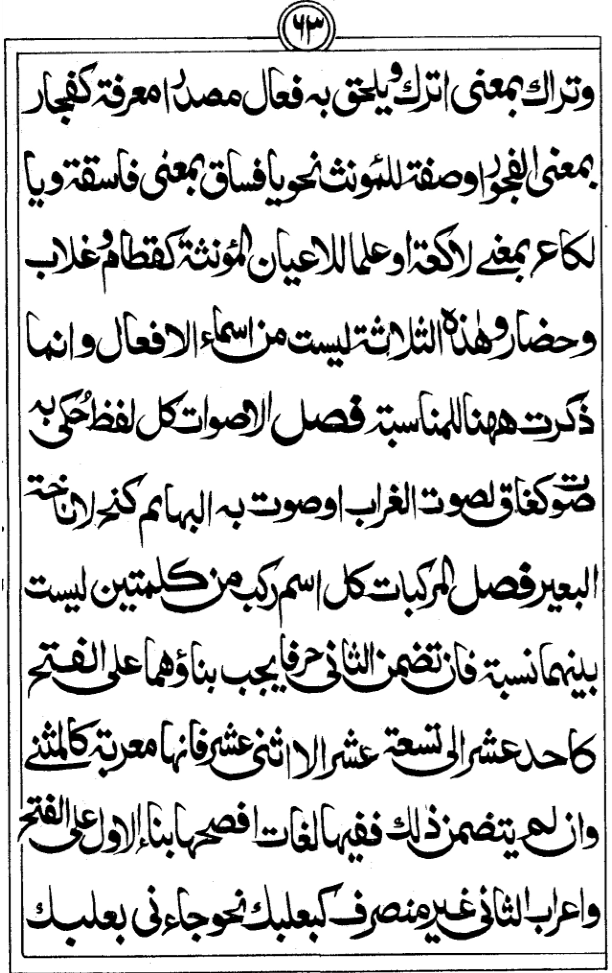 ٦٣
وتراك بمعنى اترك ويلحق به فعال مصدرا معرفة كفجار
بمعنى الفجور او صفة للمؤنث نحو يا فساق بمعنى فاسقة ويا
لكاع بمعنے لاكعة او علما للاعيان المؤنثة كقطام وغلاب
وحضار وهٰذه الثلاثة ليست من اسماء الافعال وانما
ذكرت ههنا للمناسبة فصل الاصوات كل لفظ حُكى به
صوت كغاق لصوت الغراب او صوت به البهائم كنخ لاناخة
البعير فصل المركبات كل اسم ركب من كلمتين ليست
بينهما نسبة فان تضمن الثانى حرفا يجب بناؤهما على الفتح
كاحد عشر الى تسعة عشر الا اثنى عشر فانها معربة كالمثنے
وان لم يتضمن ذلك ففيها لغات افصحها بناء الاول على الفتح
واعراب الثانى غير منصرف كبعلبك نحو جاءنى بعلبك